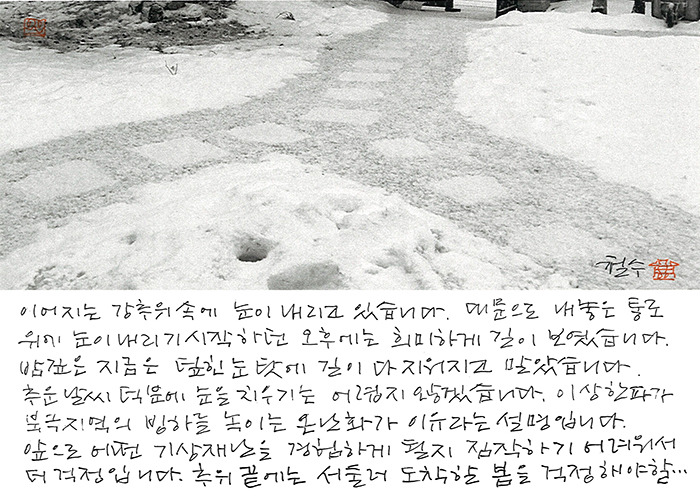 철수
이어지는 강추위 속에 눈이 내리고 있습니다. 대문으로 내놓은 통로
위에 눈이 내리기 시작하던 오후에는 희미하게 길이 보였습니다.
밤깊은 지금은 덮힌 눈 탓에 길이 다 지워지고 말았습니다.
추운 날씨 덕분에 눈을 치우기는 어렵지 않겠습니다. 이상한파가
북극지역의 빙하를 녹이는 온난화가 이유라는 설명입니다.
앞으로 어떤 기상재난을 경험하게 될지 짐작하기 어려워서
더 걱정입니다. 추위 끝에는 서둘러 도착할 봄을 걱정해야함...